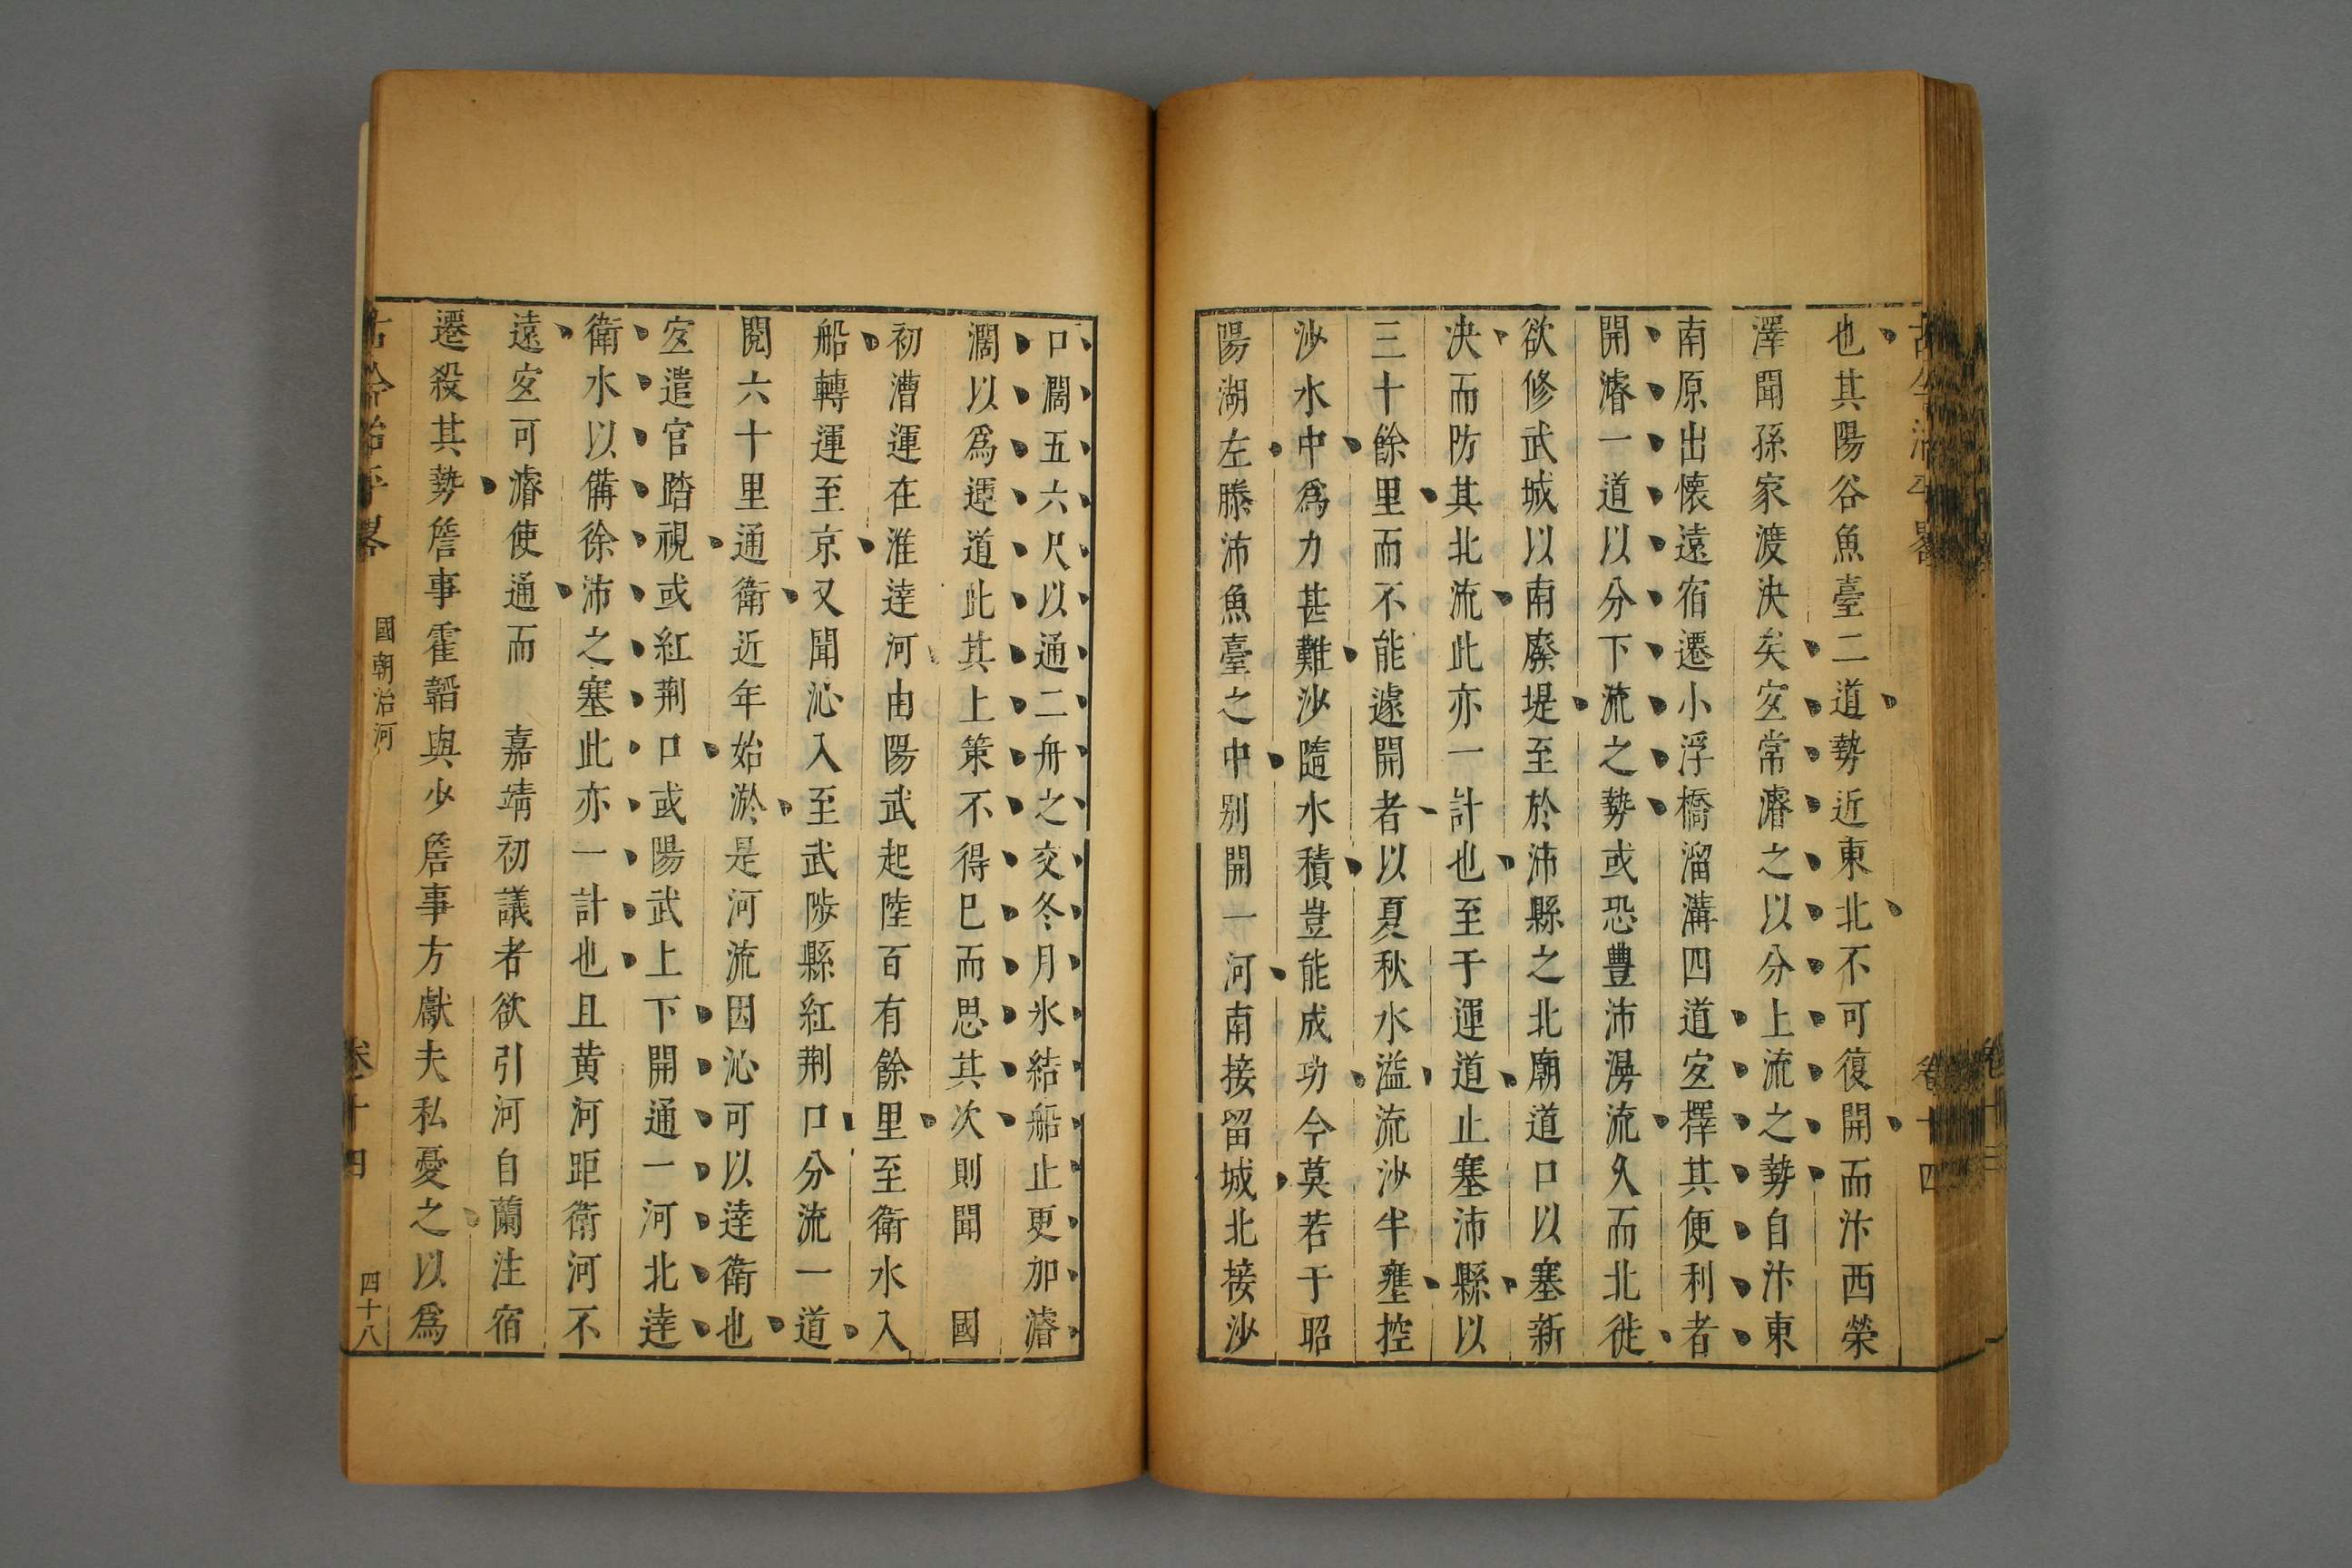 也其陽谷魚臺二道勢近東北不可復開而汴西滎
澤聞孫家渡決矣宐常濬之以分上流之勢自汴東
南原出懷遠宿遷小浮橋溜溝四道宐擇其便利者
開濬一道以分下流之勢或恐豐沛漫流久而北徙
欲修武城以南廢堤至於沛縣之北廟道口以塞新
決而防其北流此亦一計也至于運道止塞沛縣以
三十餘里而不能遽開者以夏秋水溢流沙半壅控
沙水中爲力甚難沙隨水積豈能成功今莫若于昭
陽湖左滕沛魚臺之中別開一河南接留城北接沙
口濶五六尺以通二舟之交冬月氷結船止更加濬
濶以爲運道此其上策不得已而思其次則聞　國
初漕運在淮達河由陽武起陸百有餘里至衛水入
船轉運至京又聞沁入至武陟縣紅荆口分流一道
閱六十里通衛近年始淤是河流因沁可以達衛也
宐遣官踏視或紅荆口或陽武上下開通一河北達
衛水以備徐沛之塞此亦一計也且黄河距衛河不
遠宐可濬使通而　嘉靖初議者欲引河自蘭注宿
遷殺其勢詹事霍韜與少詹事方獻夫私憂之以爲
古今治平畧
國朝治河
卷十四
四十八